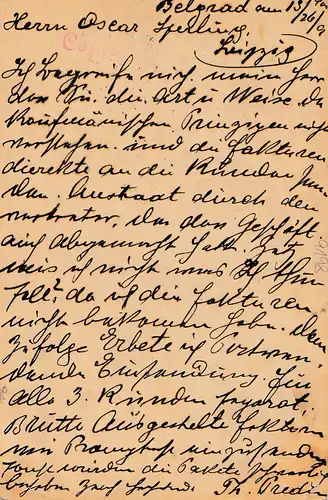 Belgrad am 13/
26/9
Herrn Oscar Sperling,
Leipzig
Ich begreife nich, mein Herr
das Sie die Art u Weise der
Kaufmänischen Prinzipien nicht
verstehen. und die Fakturen
dierekte an die Kunden
den. Anstaat durch den
vertreter, der das Geschäft
auch abgemacht hatt. Jetz
weis ich nicht was Ich thun
soll? da ich die Fakturen
nicht bekomen habe. Dem
zufolge Erbete ich
Einsendung. für
alle 3. Kunden separat,
Bitte Ausgestelte Fakturen
mir einzusenden
sonst würden die Pakete